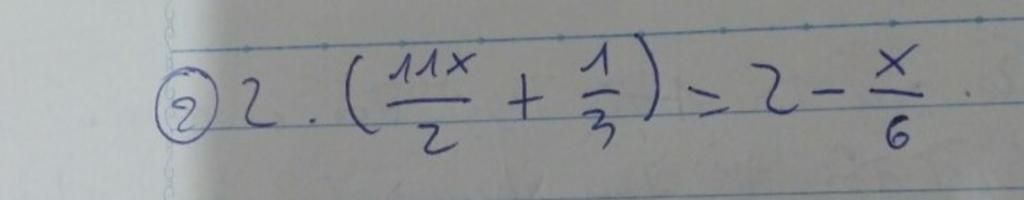 ② 2 . ( 11x/2 + 1/3 ) = 2 - x/6 .